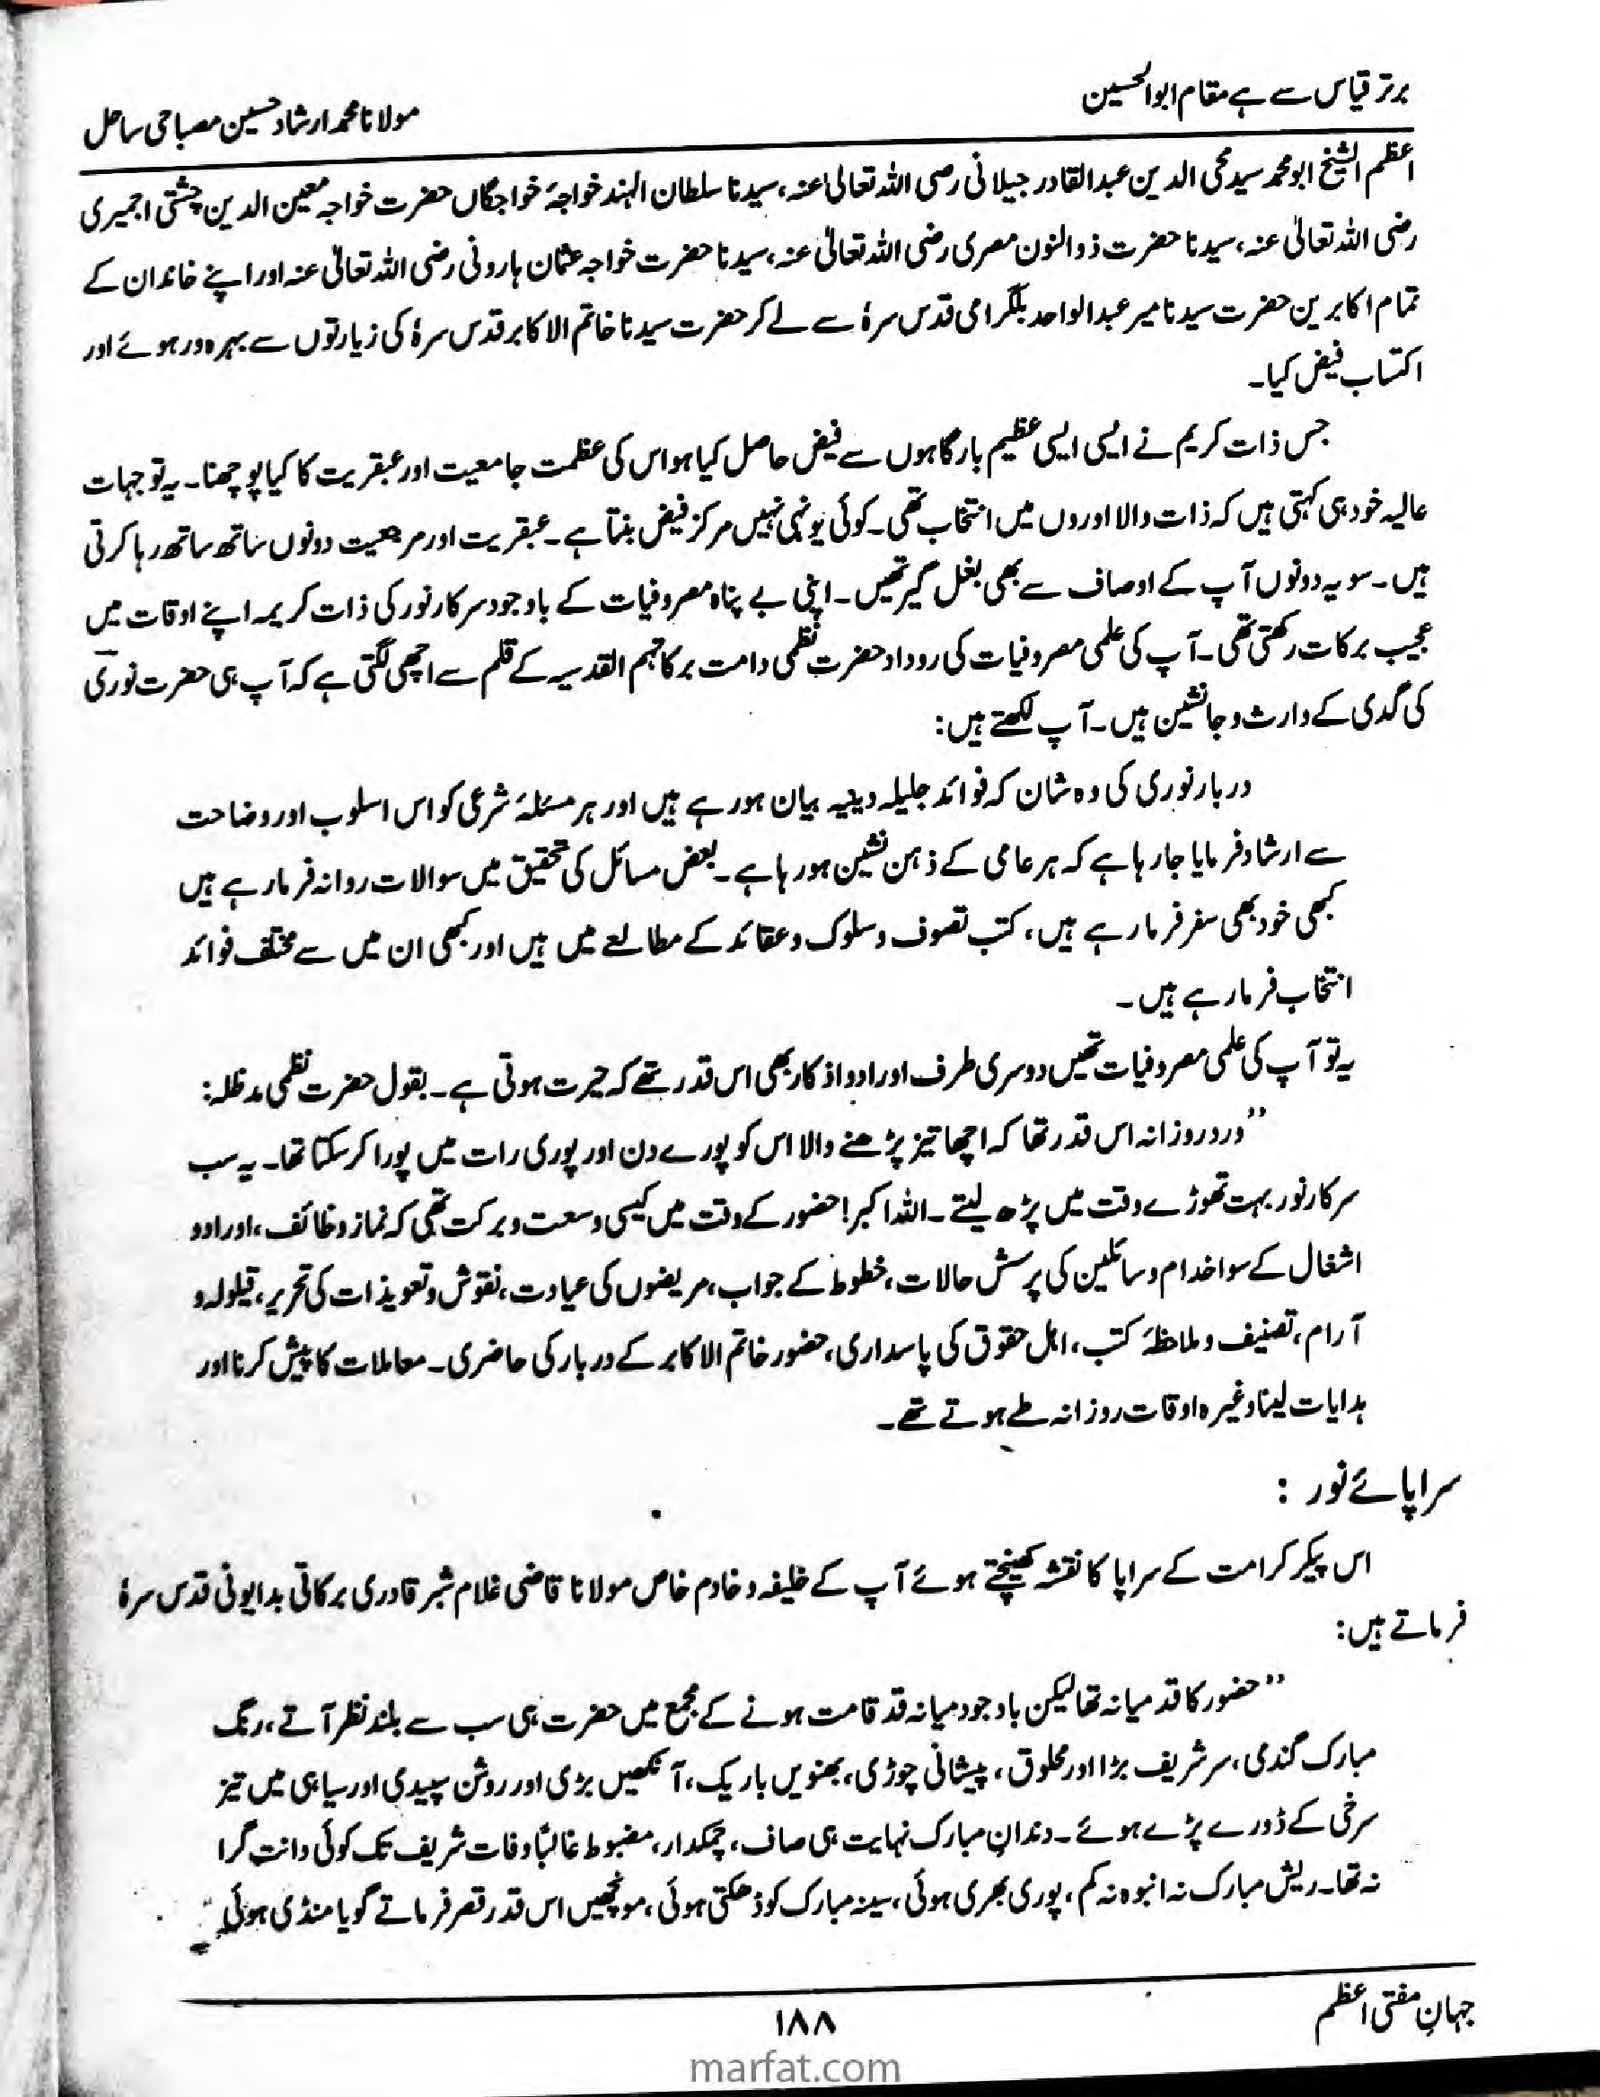 برتر قیاس سے ہے مقام ابوالحسین
مولانا محمد ارشاد حسین مصباحی ساحل
اعظم الشیخ ابو محمد سید محی الدین عبدالقادر جیلانی رضی اللہ تعالیٰ عنہ، سیدنا سلطان الہند خواجۂ خواجگاں حضرت خواجہ معین الدین چشتی اجمیری
رضی اللہ تعالیٰ عنہ، سیدنا حضرت ذوالنون مصری رضی اللہ تعالیٰ عنہ، سیدنا حضرت خواجہ عثمان ہارونی رضی اللہ تعالیٰ عنہ اور اپنے خاندان کے
تمام اکابرین حضرت سیدنا میر عبدالواحد بلگرامی قدس سرہٗ سے لے کر حضرت سیدنا خاتم الاکابر قدس سرہٗ کی زیارتوں سے بہرہ ور ہوئے اور
اکتساب فیض کیا۔
جس ذات کریم نے ایسی ایسی عظیم بارگاہوں سے فیض حاصل کیا ہو اس کی عظمت جامعیت اور عبقریت کا کیا پوچھنا۔ یہ توجہات
عالیہ خود ہی کہتی ہیں کہ ذات والا اوروں میں انتخاب تھی۔ کوئی یونہی نہیں مرکز فیض بنتا ہے۔ عبقریت اور مرجعیت دونوں ساتھ ساتھ رہا کرتی
ہیں۔ سو یہ دونوں آپ کے اوصاف سے بھی بغل گیر تھیں۔ اپنی بے پناہ مصروفیات کے باوجود سرکار نور کی ذات کریمہ اپنے اوقات میں
عجیب برکات رکھتی تھی۔ آپ کی علمی مصروفیات کی روداد حضرت نظمی دامت برکاتہم القدسیہ کے قلم سے اچھی لگتی ہے کہ آپ ہی حضرت نوری
کی گدی کے وارث و جانشین ہیں۔ آپ لکھتے ہیں:
دربار نوری کی وہ شان کہ فوائد جلیلہ دینیہ بیان ہو رہے ہیں اور ہر مسئلۂ شرعی کو اس اسلوب اور وضاحت
سے ارشاد فرمایا جا رہا ہے کہ ہر عامی کے ذہن نشین ہو رہا ہے۔ بعض مسائل کی تحقیق میں سوالات روانہ فرما رہے ہیں
کبھی خود بھی سفر فرما رہے ہیں، کتب تصوف و سلوک و عقائد کے مطالعے میں ہیں اور کبھی ان میں سے مختلف فوائد
انتخاب فرما رہے ہیں۔
یہ تو آپ کی علمی مصروفیات تھیں دوسری طرف اوراد و اذکار بھی اس قدر تھے کہ حیرت ہوتی ہے۔ بقول حضرت نظمی مدظلہ:
”ورد روزانہ اس قدر تھا کہ اچھا تیز پڑھنے والا اس کو پورے دن اور پوری رات میں پورا کر سکتا تھا۔ یہ سب
سرکار نور بہت تھوڑے وقت میں پڑھ لیتے۔ اللہ اکبر! حضور کے وقت میں کیسی وسعت و برکت تھی کہ نماز و ظائف، اوراد و
اشغال کے سوا خدام و سائلین کی پرسش حالات، خطوط کے جواب، مریضوں کی عیادت، نقوش و تعویذات کی تحریر، قیلولہ و
آرام، تصنیف و ملاحظۂ کتب، اہل حقوق کی پاسداری، حضور خاتم الاکابر کے دربار کی حاضری۔ معاملات کا پیش کرنا اور
ہدایات لینا وغیرہ اوقات روزانہ طے ہوتے تھے۔
سراپائے نور :
اس پیکر کرامت کے سراپا کا نقشہ کھینچتے ہوئے آپ کے خلیفہ و خادم خاص مولانا قاضی غلام شبر قادری برکاتی بدایونی قدس سرہٗ
فرماتے ہیں:
”حضور کا قد میانہ تھا لیکن باوجود میانہ قد قامت ہونے کے مجمع میں حضرت ہی سب سے بلند نظر آتے، رنگ
مبارک گندمی، سر شریف بڑا اور محلوق، پیشانی چوڑی، بھنویں باریک، آنکھیں بڑی اور روشن سپیدی اور سیاہی میں تیز
سرخی کے ڈورے پڑے ہوئے۔ دندان مبارک نہایت ہی صاف، چمکدار، مضبوط غالباً وفات شریف تک کوئی دانت گرا
نہ تھا۔ ریش مبارک نہ انبوہ نہ کم، پوری بھری ہوئی، سینہ مبارک کو ڈھکتی ہوئی، مونچھیں اس قدر قصر فرماتے گویا منڈی ہوئی
جہانِ مفتی اعظم
۱۸۸
marfat.com